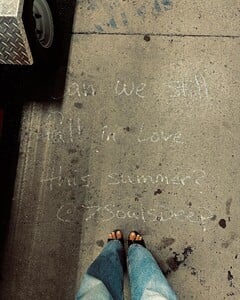 Can we still
fall in love
this summer?
@7SoulsDeep